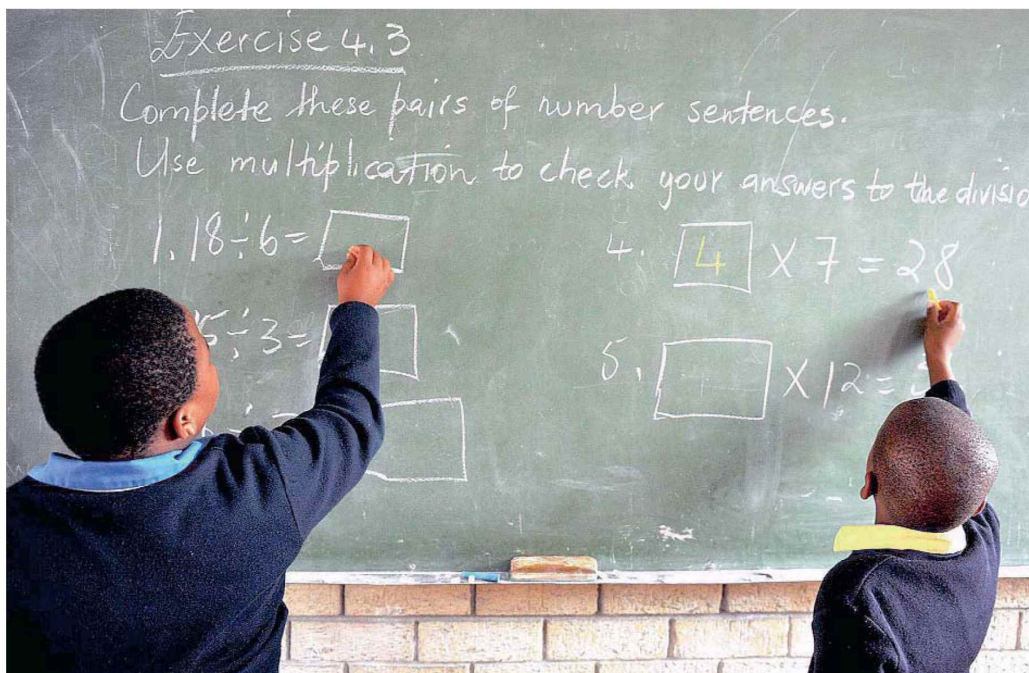 Exercise 4.3
Complete these pairs of number sentences.
Use multiplication to check your answers to the
1. 18÷6=
5÷3=
4. 4 X 7 = 28
5. X 12 =